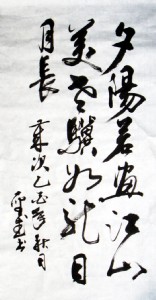 夕陽若畫江山
美老驥如龍日
月長
歲次乙酉年秋月